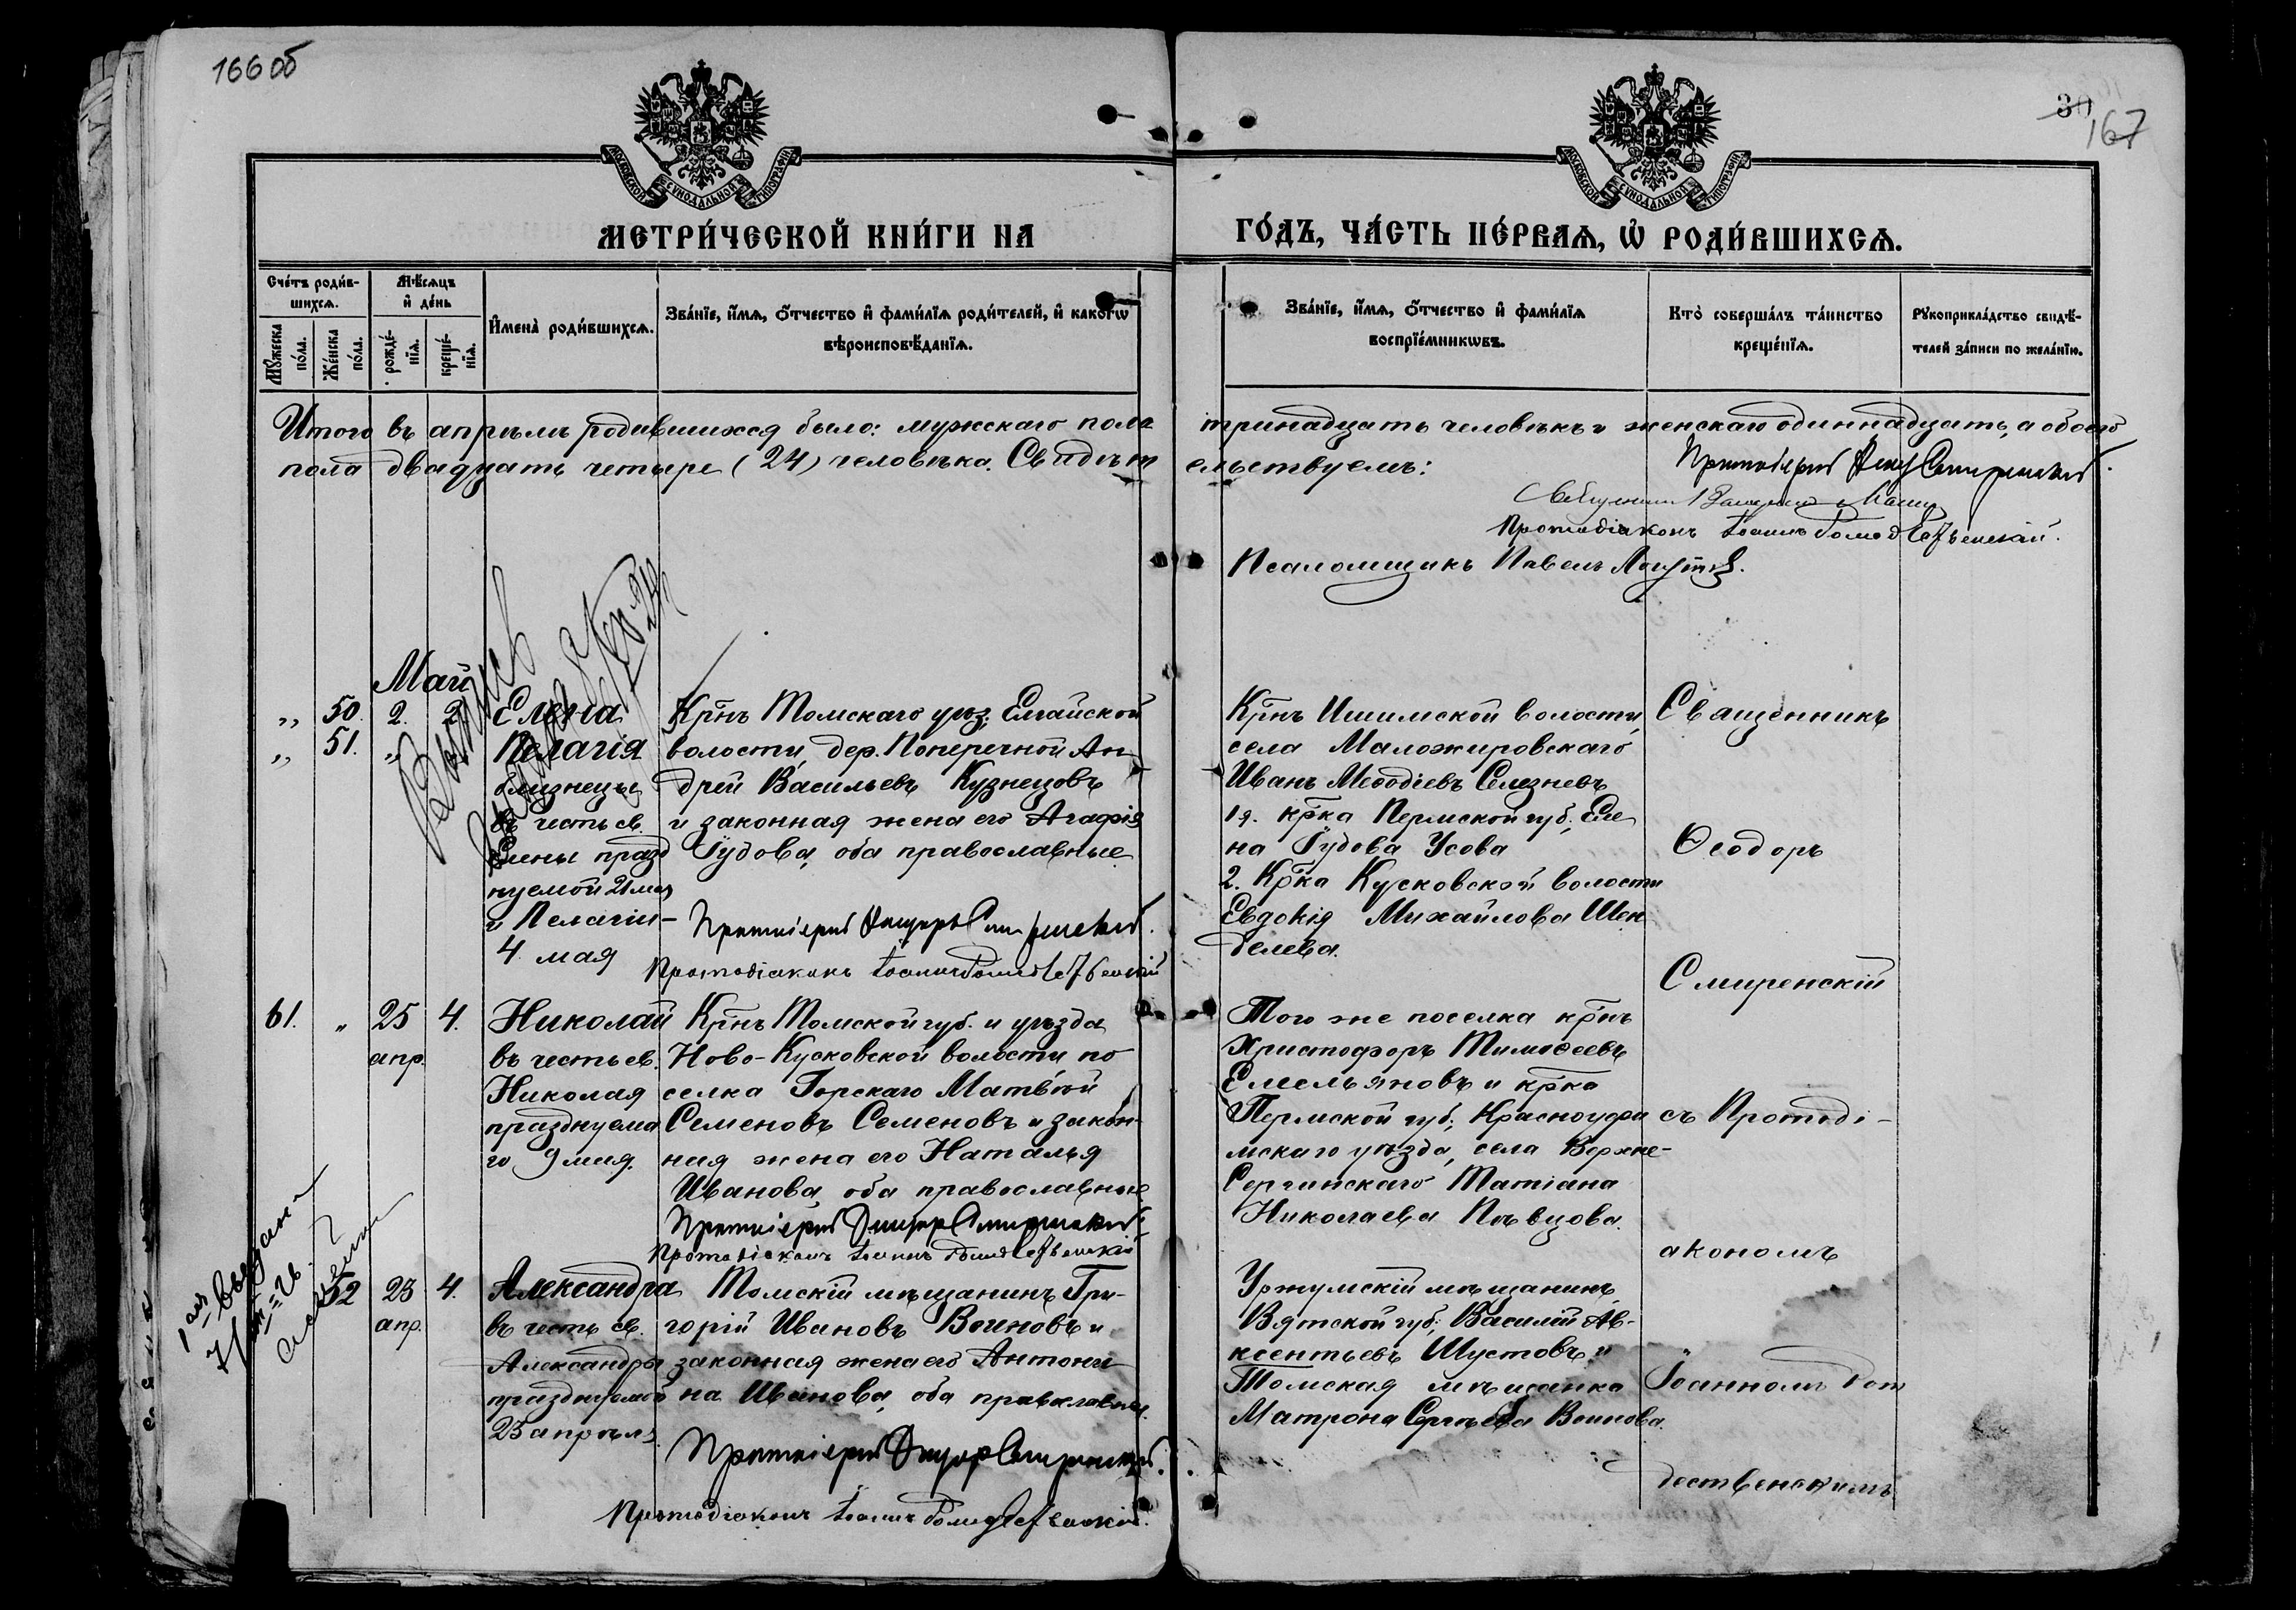 166 об
30
167
МОСКОВСКОЙ СУНОДАЛЬНОЙ ТИПОГРАФІИ
МОСКОВСКОЙ СУНОДАЛЬНОЙ ТИПОГРАФІИ
МЕТРИ́ЧЕСКОЙ КНИ́ГИ НА
ГО́ДЪ, ЧА́СТЬ ПЕ́РВАѦ, Ѡ РОДИ́ВШИХСѦ.
Сче́тъ роди́в-
шихсѧ.
Мꙋ́жеска
по́ла.
Же́нска
по́ла.
Мѣ́сѧцъ
и де́нь
рожде́-
нїѧ.
креще́-
нїѧ.
Имена̀ роди́вшихсѧ.
Зва́нїе, и́мѧ, о́тчество и фами́лїѧ роди́телей, и какогѡ
вѣроисповѣ́данїѧ.
Зва́нїе, и́мѧ, о́тчество и фами́лїѧ
воспрїе́мникѡвъ.
Кто̀ соверша́лъ та́инство
креще́нїѧ.
Рꙋкоприкла́дство свидѣ́-
телей за́писи по жела́нїю.
Итого въ апрѣлѣ родившихся было: мужскаго пола
пола двадцать четыре (24) человѣка. Свидѣт
тринадцать человѣкъ и женскаго одиннадцать, а обоего
ельствуемъ:
Протоіерей Смиренскій
Протодіаконъ Іоаннъ Рождественскій.
Псаломщикъ Павелъ
Май
„ 50. 2. 2 Елена
„ 51. „ Пелагія
близнецы
въ честь св.
Елены празд
нуемой 21 мая
и Пелагіи
4 мая
Крнъ Томскаго уѣз. Елгайской
волости, дер. Поперечной Ан
дрей Васильевъ Кузнецовъ
и законная жена его Агафія
Гудова, оба православные
Протоіерей Смиренскій.
Протодіаконъ Іоаннъ Рождественскій
Крнъ Ишимской волости,
села Маложировскаго
Иванъ Меѳодіевъ Селезневъ
1я. крка Пермской губ. Еле
на Гудова Усова
2. Крка Кусковской волости
Евдокія Михайлова Шен
белева.
Священникъ
Ѳеодоръ
Смиренскій
61. „ 25 4.
апр.
Николай
въ честь св.
Николая
празднуема
го 9 мая.
Крнъ Томской губ. и уѣзда
Ново-Кусковской волости по
селка Горскаго Матвѣй
Семеновъ Семеновъ и закон-
ная жена его Наталья
Иванова, оба православные
Протоіерей Смиренскій
Протодіаконъ Іоаннъ Рождественскій
Того же поселка крнъ
Христофоръ Тимоѳеевъ
Емельяновъ и крка
Пермской губ., Красноуфи
мскаго уѣзда, села Верхне-
Сергинскаго Татіана
Николаева Пѣвцова.
съ Протоді-
акономъ
52 23 4.
апр.
Александра
въ честь св.
Александры
празднуемой
23 апрѣля
Томскій мѣщанинъ Гри-
горій Ивановъ Воиновъ и
законная жена его Антони
на Иванова, оба православные.
Протоіерей Смиренскій.
Протодіаконъ Іоаннъ Рождественскій.
Уржумскій мѣщанинъ
Вятской губ., Василій Ав-
ксентьевъ Шустовъ и
Томская мѣщанка
Матрона Сергѣева Воинова.
Іоанномъ Рож
дественскимъ